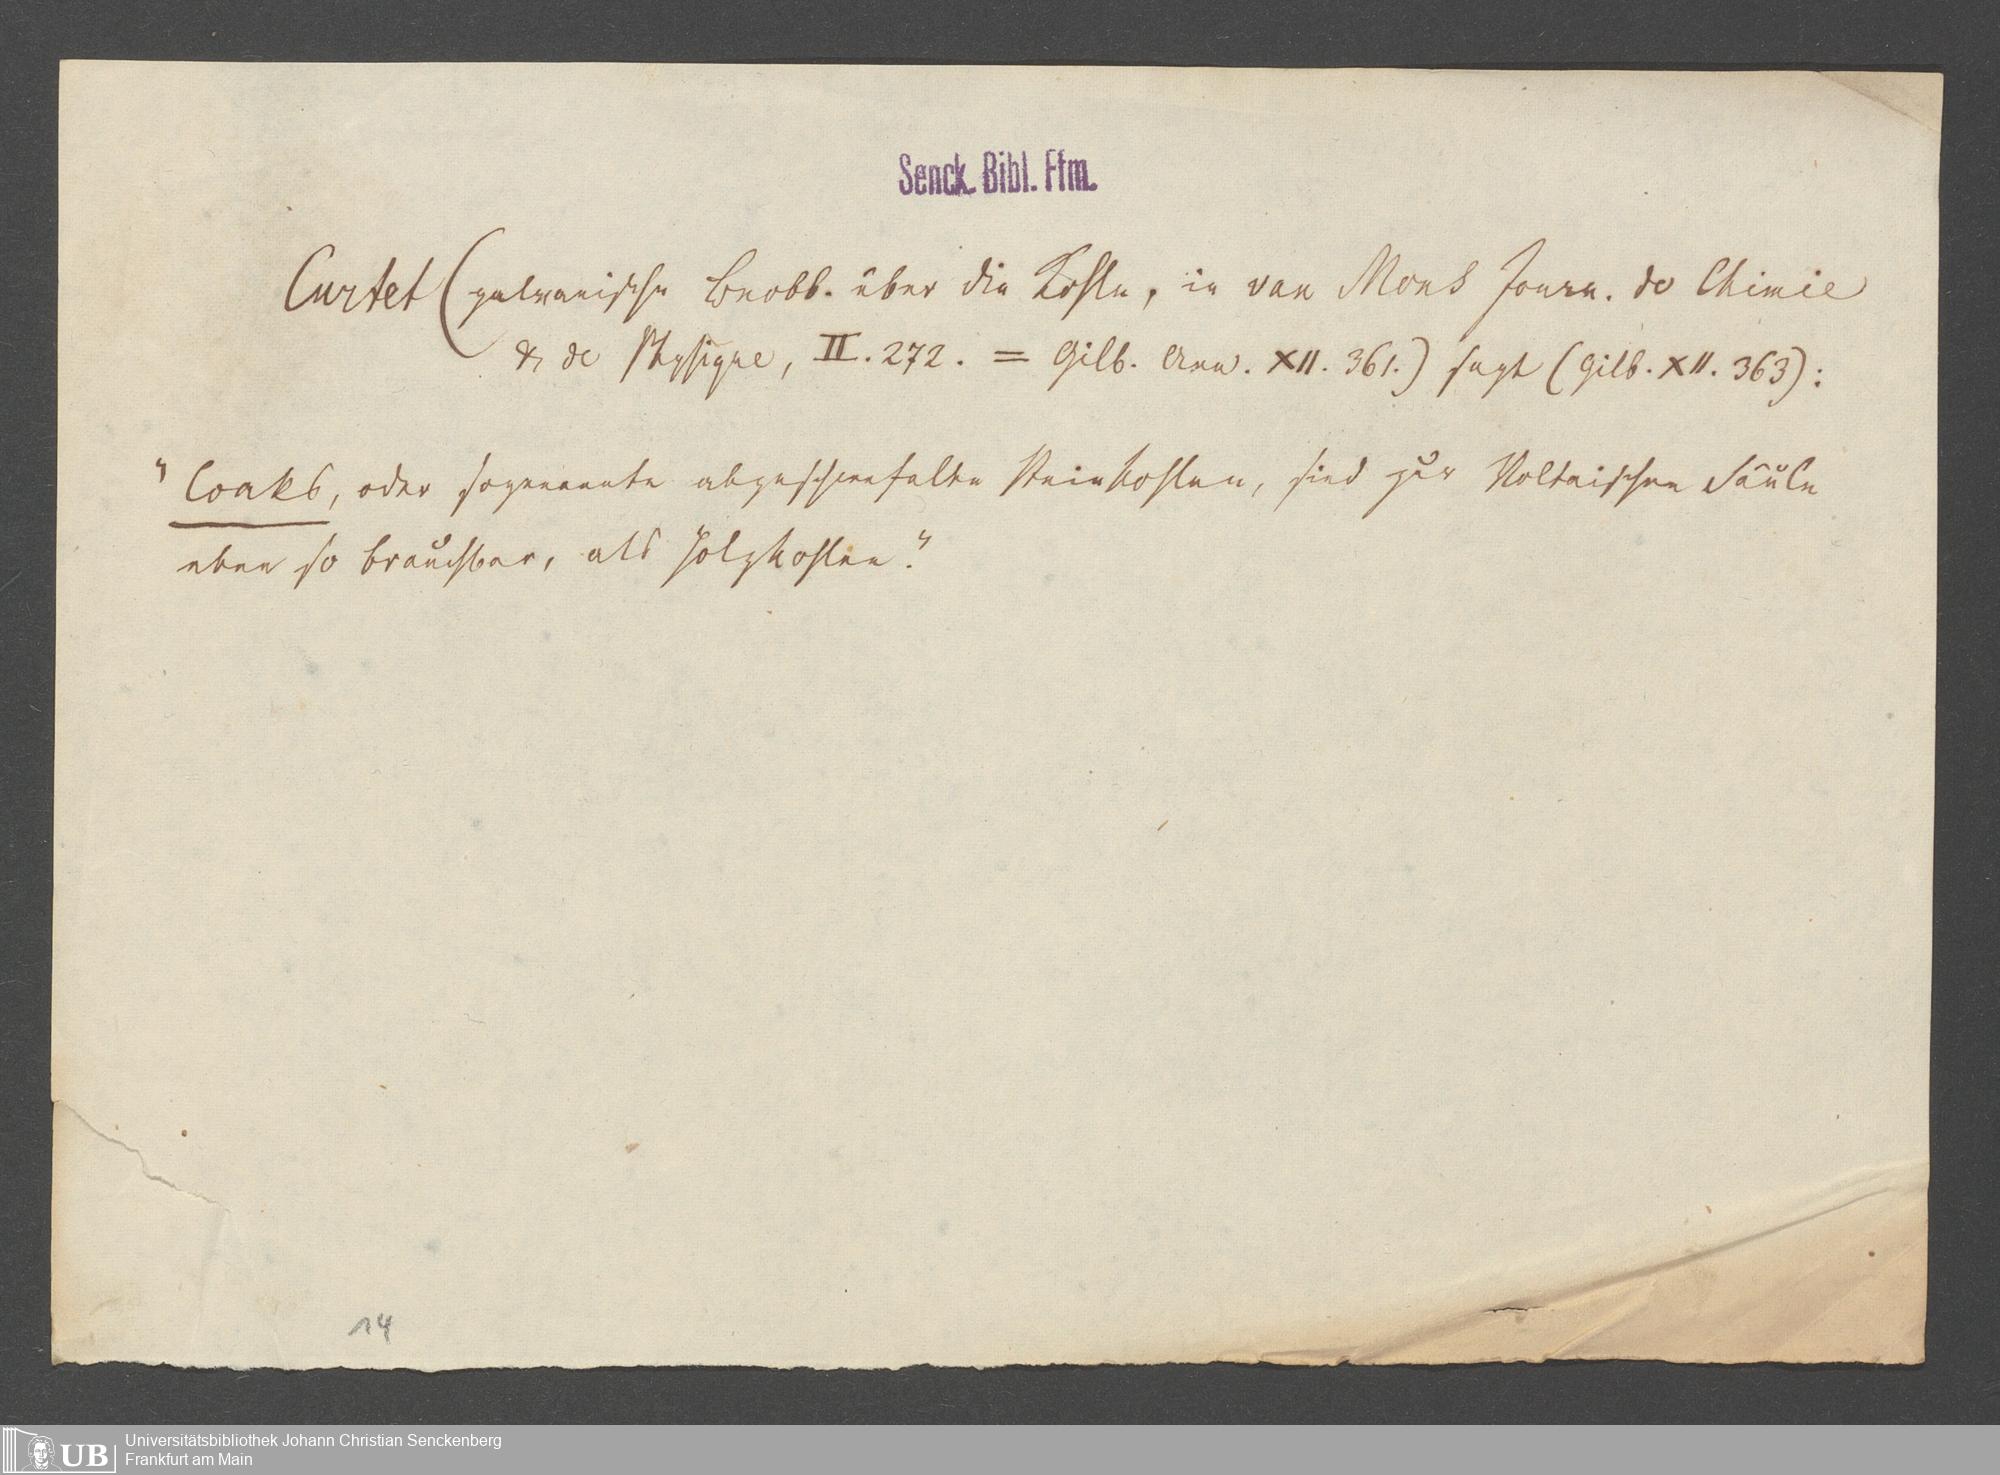 Senck. Bibl. Ffm.
Curtet (galvanische Beobb. über die Kohle, in van Mons Journ. de Chimie
& de Physique, II. 272. = Gilb. Ann. XII. 361.) sagt (Gilb. XII. 363):
"Coaks, oder sogenannte abgeschwefelte Steinkohlen, sind zur Voltaischen Säule
eben so brauchbar, als Holzkohlen."
14
UB Universitätsbibliothek Johann Christian Senckenberg
Frankfurt am Main